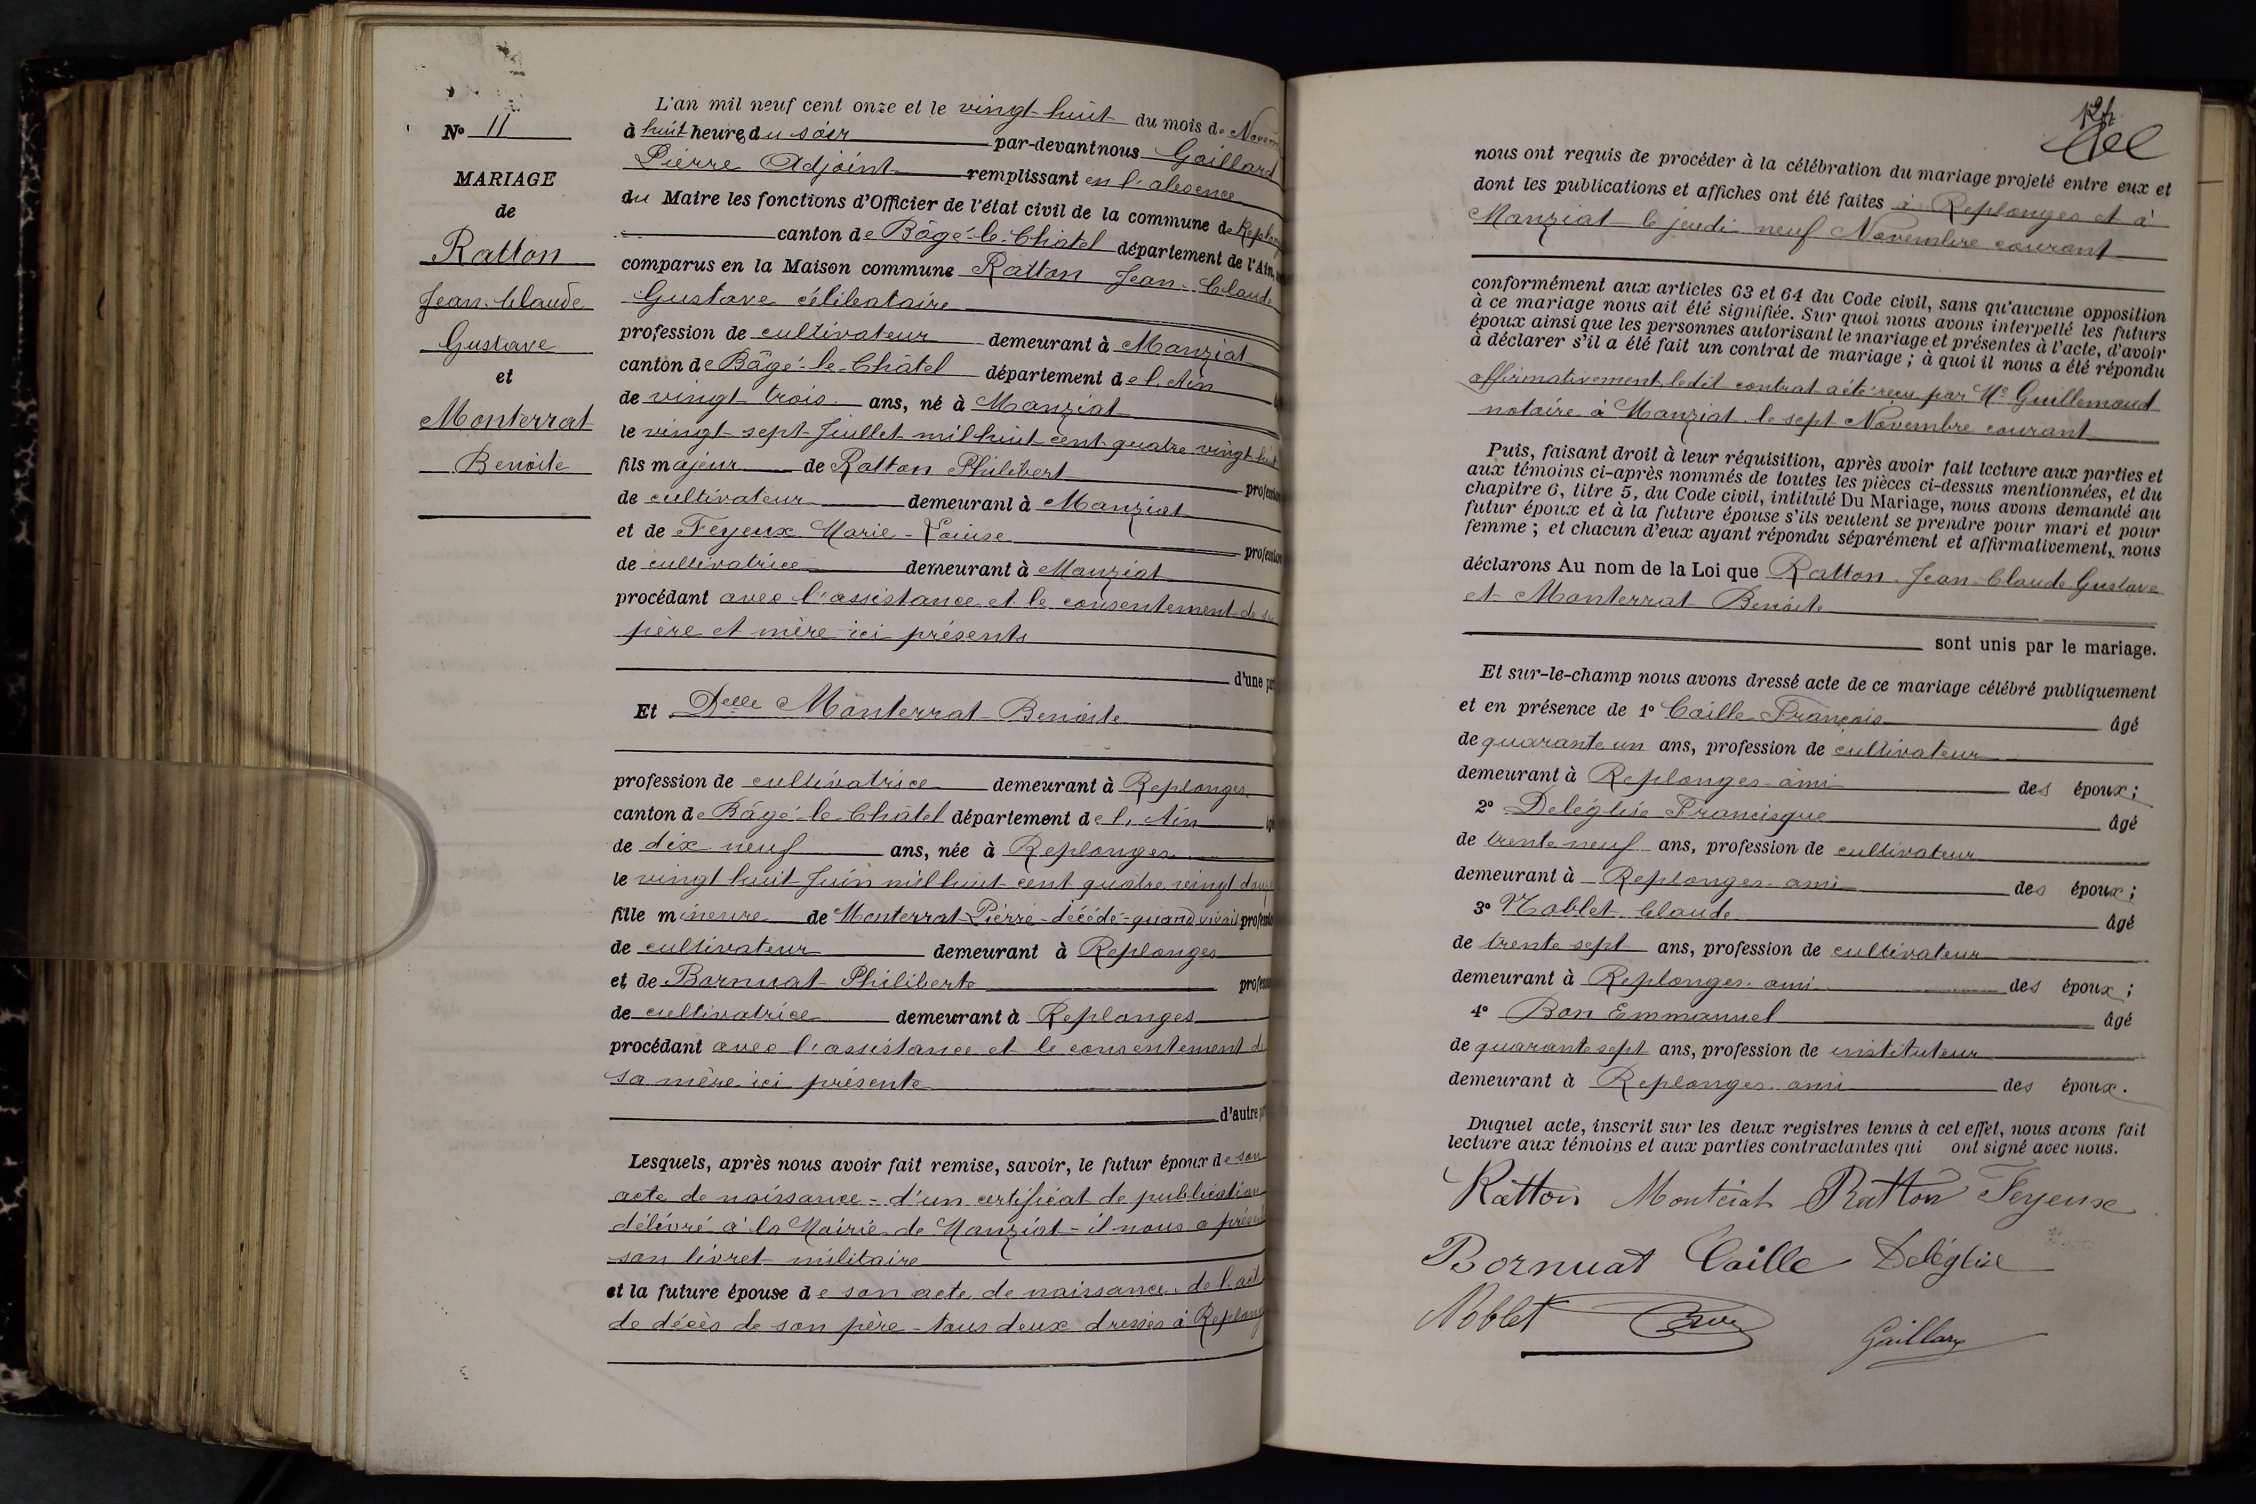 N° 11
MARIAGE
de
Ratton
Jean-Claude
Gustave
et
Monterrat
Benoite
L'an mil neuf cent onze et le vingt-huit du mois de Novem
à huit heures du soir par-devant nous Gaillard
Pierre Adjoint remplissant en l'absence
du Maire les fonctions d'Officier de l'état civil de la commune de Replong
canton de Bâgé-le-Châtel département de l'Ain,
comparus en la Maison commune Ratton Jean-Claude
Gustave célibataire
profession de cultivateur demeurant à Manziat
canton de Bâgé-le-Châtel département de l'Ain
de vingt trois ans, né à Manziat
le vingt-sept Juillet mil huit cent quatre vingt huit
fils majeur de Ratton Philibert profession
de cultivateur demeurant à Manziat
et de Feyeux Marie-Louise profession
de cultivatrice demeurant à Manziat
procédant avec l'assistance et le consentement de
père et mère ici présents
d'une par
Et Delle Monterrat Benoite
profession de cultivatrice demeurant à Replonges
canton de Bâgé-le-Châtel département de l'Ain
de dix neuf ans, née à Replonges
le vingt huit Juin mil huit cent quatre vingt
fille mineure de Monterrat Pierre-décédé-quand vivait profession
de cultivateur demeurant à Replonges
et de Bornuat Philiberte profession
de cultivatrice demeurant à Replonges
procédant avec l'assistance et le consentement de
sa mère ici présente
d'autre
Lesquels, après nous avoir fait remise, savoir, le futur époux de son
acte de naissance - d'un certificat de publication
délivré à la Mairie de Manziat - il nous a présen
son livret militaire
et la future épouse de son acte de naissance, de l'act
de décès de son père - tous deux dressés à Replong
nous ont requis de procéder à la célébration du mariage projeté entre eux et
dont les publications et affiches ont été faites à Replonges et à
Manziat le jeudi neuf Novembre courant
conformément aux articles 63 et 64 du Code civil, sans qu'aucune opposition
à ce mariage nous ait été signifiée. Sur quoi nous avons interpellé les futurs
époux ainsi que les personnes autorisant le mariage et présentes à l'acte, d'avoir
à déclarer s'il a été fait un contrat de mariage ; à quoi il nous a été répondu
affirmativement, ledit contrat a été reçu par Me Guillemaud
notaire à Manziat le sept Novembre courant
Puis, faisant droit à leur réquisition, après avoir fait lecture aux parties et
aux témoins ci-après nommés de toutes les pièces ci-dessus mentionnées, et du
chapitre 6, titre 5, du Code civil, intitulé Du Mariage, nous avons demandé au
futur époux et à la future épouse s'ils veulent se prendre pour mari et pour
femme ; et chacun d'eux ayant répondu séparément et affirmativement, nous
déclarons Au nom de la Loi que Ratton Jean Claude Gustave
et Monterrat Benoite
sont unis par le mariage.
Et sur-le-champ nous avons dressé acte de ce mariage célébré publiquement
et en présence de 1° Caille François âgé
de quarante un ans, profession de cultivateur
demeurant à Replonges ami des époux ;
2° Deléglise Francisque âgé
de trente neuf ans, profession de cultivateur
demeurant à Replonges ami des époux ;
3° Noblet Claude âgé
de trente sept ans, profession de cultivateur
demeurant à Replonges ami des époux ;
4° Bon Emmanuel âgé
de quarante sept ans, profession de instituteur
demeurant à Replonges ami des époux.
Duquel acte, inscrit sur les deux registres tenus à cet effet, nous avons fait
lecture aux témoins et aux parties contractantes qui ont signé avec nous.
Ratton Ratton Feyeux
Bornuat Caille Deléglise
Noblet
Gaillard